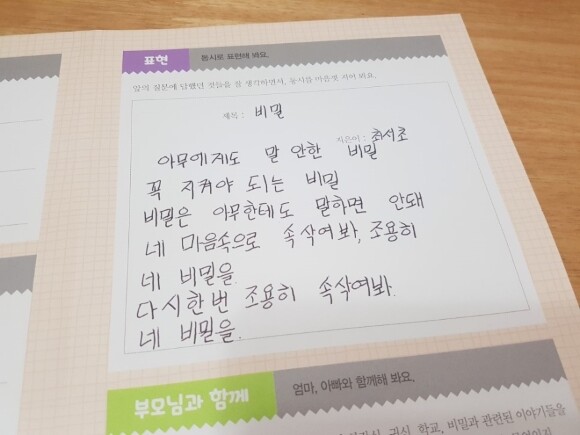 표현 동시로 표현해 봐요.
앞의 질문에 답했던 것들을 잘 생각하면서, 동시를 마음껏 지어 봐요.
제목 : 비밀
지은이 : 최서초
아무에게도 말 안한 비밀
꼭 지켜야 되는 비밀
비밀은 아무한테도 말하면 안돼
네 마음속으로 속삭여봐, 조용히
네 비밀을.
다시한번 조용히 속삭여봐.
네 비밀을.
부모님과 함께 엄마, 아빠와 함께해 봐요.
귀신, 학교, 비밀과 관련된 이야기들을